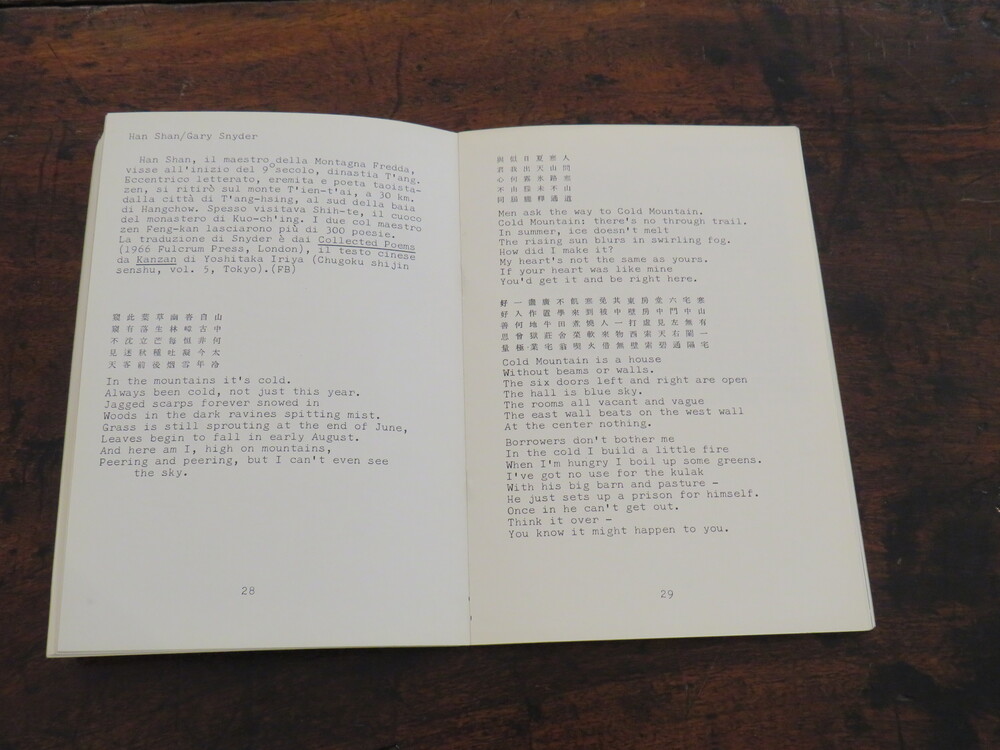 Han Shan/Gary Snyder
Han Shan, il maestro della Montagna Fredda,
visse all'inizio del 9°secolo, dinastia T'ang.
Eccentrico letterato, eremita e poeta taoista-
zen, si ritirò sul monte T'ien-t'ai, a 30 km.
dalla città di T'ang-hsing, al sud della baia
di Hangchow. Spesso visitava Shih-te, il cuoco
del monastero di Kuo-ch'ing. I due col maestro
zen Feng-kan lasciarono più di 300 poesie.
La traduzione di Snyder è dai Collected Poems
(1966 Fulcrum Press, London), il testo cinese
da Kanzan di Yoshitaka Iriya (Chugoku shijin
senshu, vol. 5, Tokyo).(FB)
窺此葉草幽沓自山
窺有落生林嶂古中
不沈立芒每恨非何
見迷秋種吐凝今太
天客前後烟雪年冷
In the mountains it's cold.
Always been cold, not just this year.
Jagged scarps forever snowed in
Woods in the dark ravines spitting mist.
Grass is still sprouting at the end of June,
Leaves begin to fall in early August.
And here am I, high on mountains,
Peering and peering, but I can't even see
the sky.
28
與似日夏寒人
君我出天山問
心何霧氷路寒
不由朦未不山
同屆朧釋通道
Men ask the way to Cold Mountain.
Cold Mountain: there's no through trail.
In summer, ice doesn't melt
The rising sun blurs in swirling fog.
How did I make it?
My heart's not the same as yours.
If your heart was like mine
You'd get it and be right here.
好一曲廣不飢寒免其東房堂六宅寒
好入作置學來到被中壁房中門中山
善何地牛田煮燒人一打虛見左無有
思曾獄莊舍菜軟來物西索天右闌一
量極業宅翁喫火借無壁索碧通隔宅
Cold Mountain is a house
Without beams or walls.
The six doors left and right are open
The hall is blue sky.
The rooms all vacant and vague
The east wall beats on the west wall
At the center nothing.
Borrowers don't bother me
In the cold I build a little fire
When I'm hungry I boil up some greens.
I've got no use for the kulak
With his big barn and pasture -
He just sets up a prison for himself.
Once in he can't get out.
Think it over -
You know it might happen to you.
29